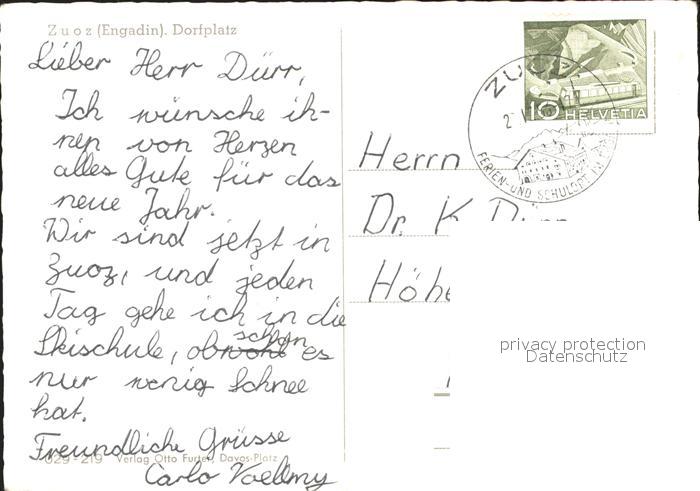 Zuoz (Engadin). Dorfplatz
Lieber Herr Dürr,
Ich wünsche ih-
nen von Herzen
alles Gute für das
neue Jahr.
Wir sind jetzt in
Zuoz, und jeden
Tag gehe ich in die
Skischule, obschon es
nur wenig Schnee
hat.
Freundliche Grüsse
Carlo Voellmy
029-219 Verlag Otto Furter, Davos-Platz
Herrn
Dr. K. Dürr
Höhe
10 HELVETIA
ZUOZ
FERIEN- UND SCHULORT
privacy protection
Datenschutz